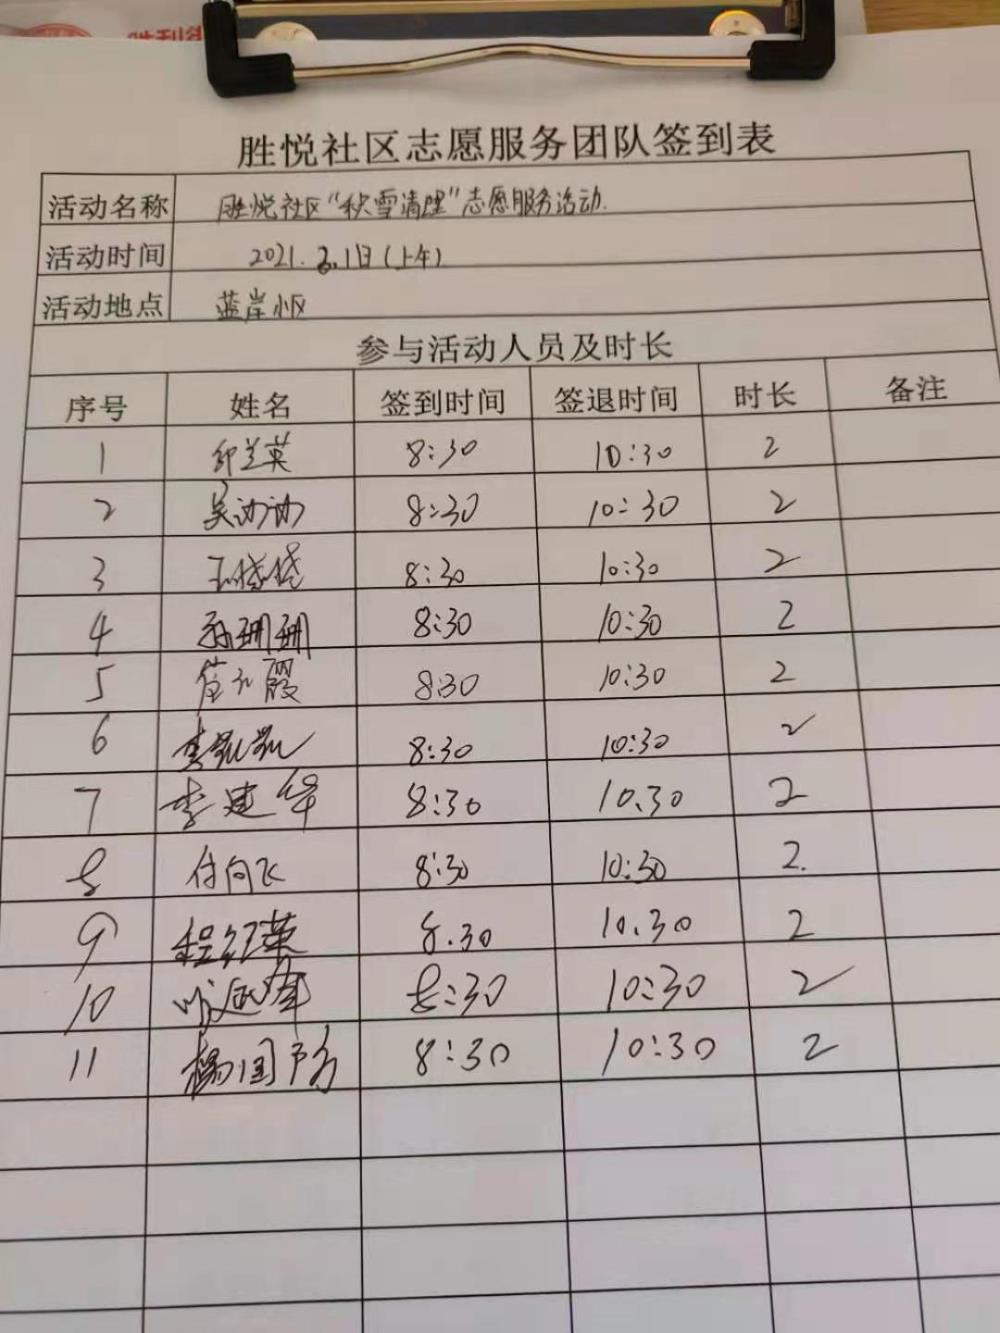 胜利街
胜悦社区志愿服务团队签到表
活动名称 胜悦社区“积雪清理”志愿服务活动.
活动时间 2021.3.1日(上午)
活动地点 蓝岸小区
参与活动人员及时长
序号 姓名 签到时间 签退时间 时长 备注
1 邱兰英 8:30 10:30 2
2 吴访访 8:30 10:30 2
3 8:30 10:30 2
4 孙珊珊 8:30 10:30 2
5 8:30 10:30 2
6 李凯凯 8:30 10:30 2
7 李建华 8:30 10.30 2
8 付向飞 8:30 10:30 2.
9 程红英 8.30 10.30 2
10 8:30 10:30 2
11 杨国防 8:30 10:30 2